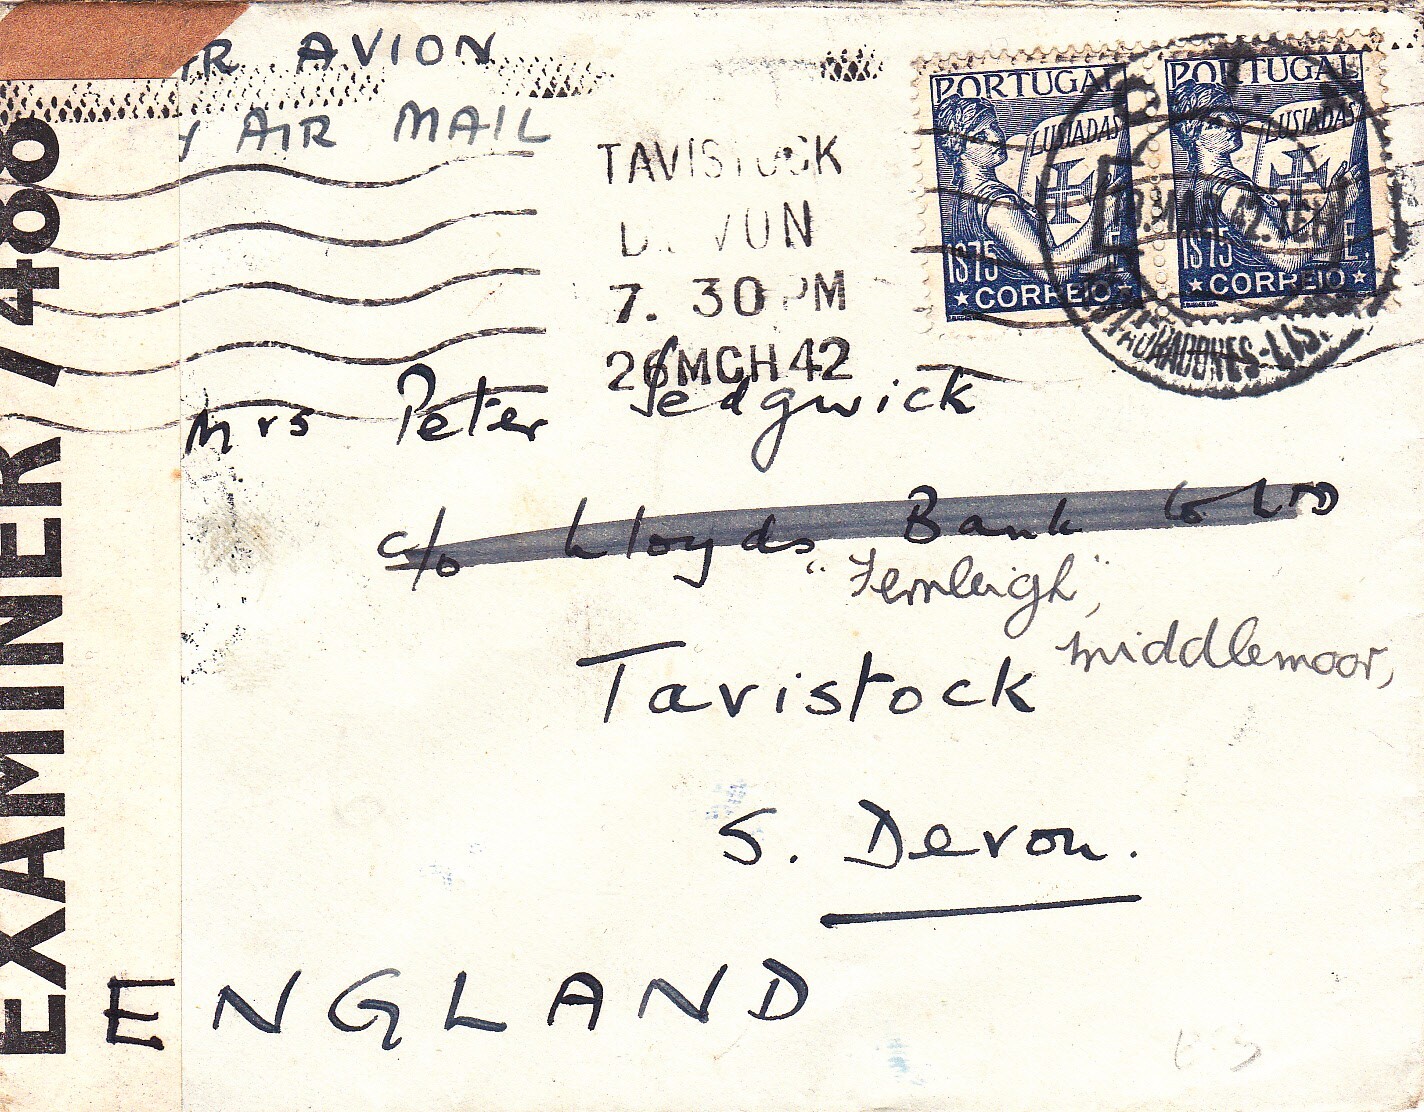 AVION
AIR MAIL
TAVISTOCK
DEVON
7. 30 PM
26 MCH 42
PORTUGAL
LUSIADAS
1$75
E.
CORREIO
PORTUGAL
LUSIADAS
1$75
E.
CORREIO
EXAMINER / 488
Mrs Peter Sedgwick
c/o Lloyds Bank Co LTD
"Fernleigh",
Middlemoor,
Tavistock
S. Devon.
ENGLAND